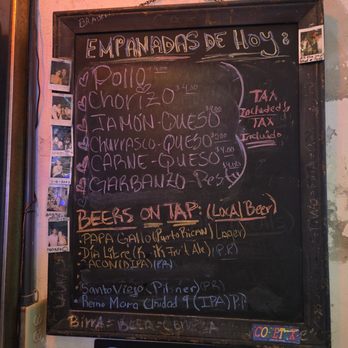 EMPANADAS DE HOY:
Pollo
Chorizo $4.00
JAMÓN-QUESO $4.00
Churrasco-QUESO $5.00
CARNE-QUESO $4.00
GARBANZO-Pesto $4.00
TAX
Included!
TAX
Incluido
BEERS ON TAP: (Local Beer)
PAPA GALLO (Puerto Rican) (Lager)
Día Libre Ale) (P.R)
(DIPA) (PR)
Santo Viejo (Pilsner) (PR)
Reino Mora Unidad 9 (IPA) PR
Birra = Beer = Cerveza